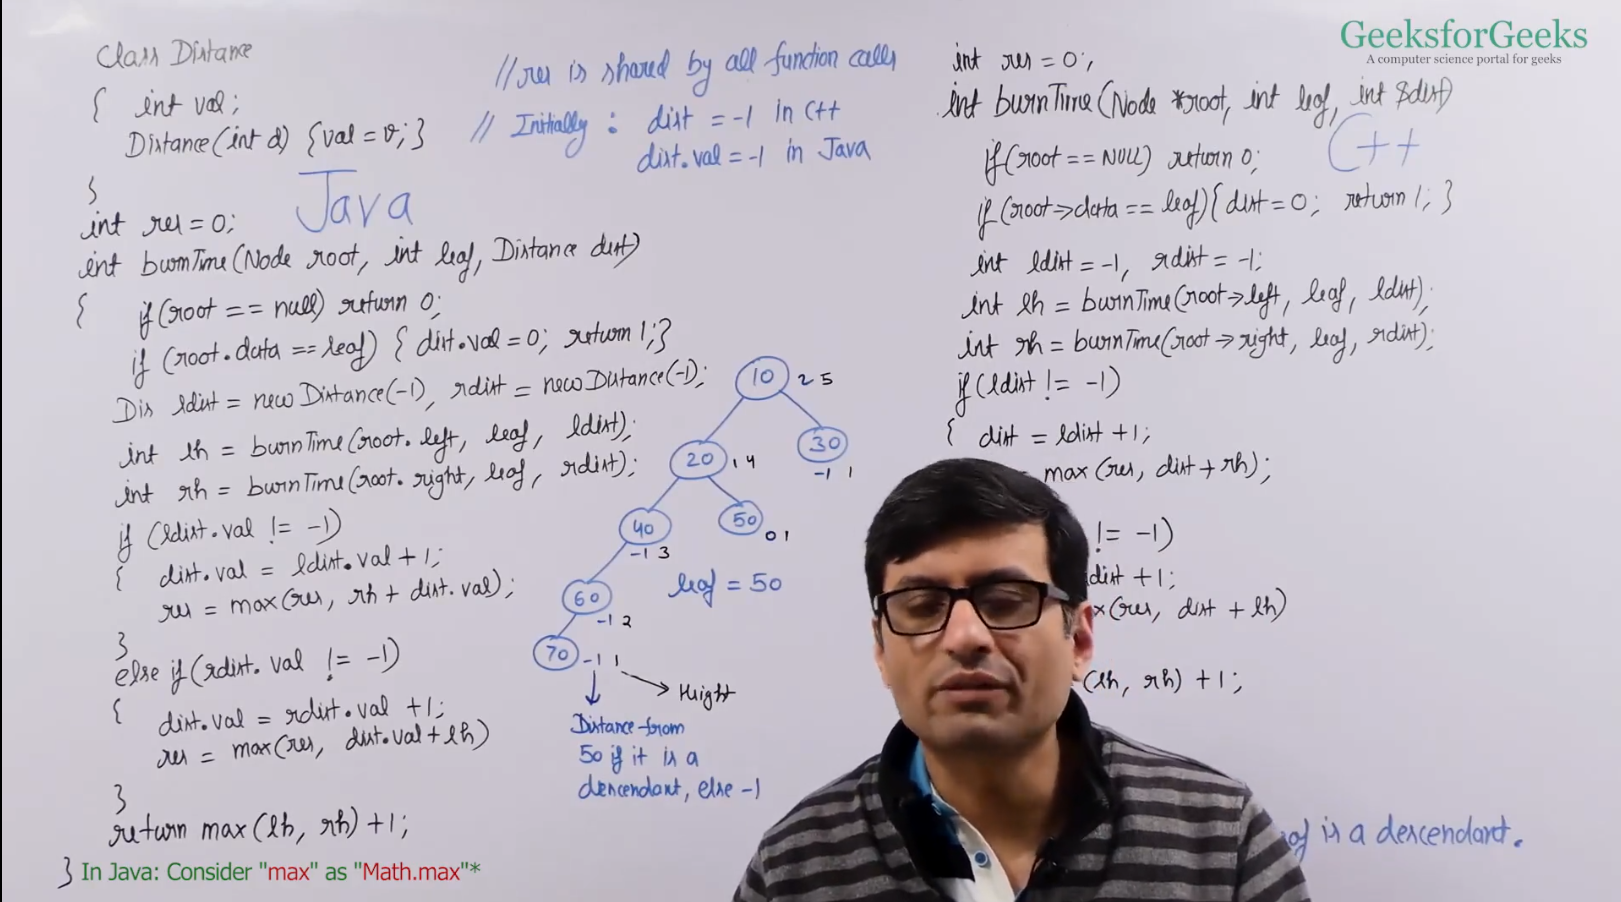 GeeksforGeeks
A computer science portal for geeks
Class Distance
{ int val;
Distance(int d) {val = v;}
}
Java
int res = 0;
int burnTime(Node root, int leaf, Distance dist)
{ if(root == null) return 0;
if (root.data == leaf) { dist.val = 0; return 1;}
Dis ldist = new Distance(-1), rdist = new Distance(-1);
int lh = burnTime(root.left, leaf, ldist);
int rh = burnTime(root.right, leaf, rdist);
if (ldist.val != -1)
{ dist.val = ldist.val + 1;
res = max(res, rh + dist.val);
}
else if(rdist.val != -1)
{ dist.val = rdist.val + 1;
res = max(res, dist.val + lh)
}
return max(lh, rh) + 1;
} In Java: Consider "max" as "Math.max"*
// res is shared by all function calls
// Initially : dist = -1 in C++
dist.val = -1 in Java
10 2 5
20 1 4
30
-1 1
40
-1 3
50
0 1
60
-1 2
leaf = 50
70 -1 1
Height
Distance from
50 if it is a
descendant, else -1
int res = 0;
int burnTime(Node *root, int leaf, int &dist)
C++
if(root == NULL) return 0;
if(root->data == leaf){ dist = 0; return 1; }
int ldist = -1, rdist = -1;
int lh = burnTime(root->left, leaf, ldist);
int rh = burnTime(root->right, leaf, rdist);
if(ldist != -1)
{ dist = ldist + 1;
max(res, dist + rh);
!= -1)
dist + 1;
x(res, dist + lh)
(lh, rh) + 1;
is a descendant.